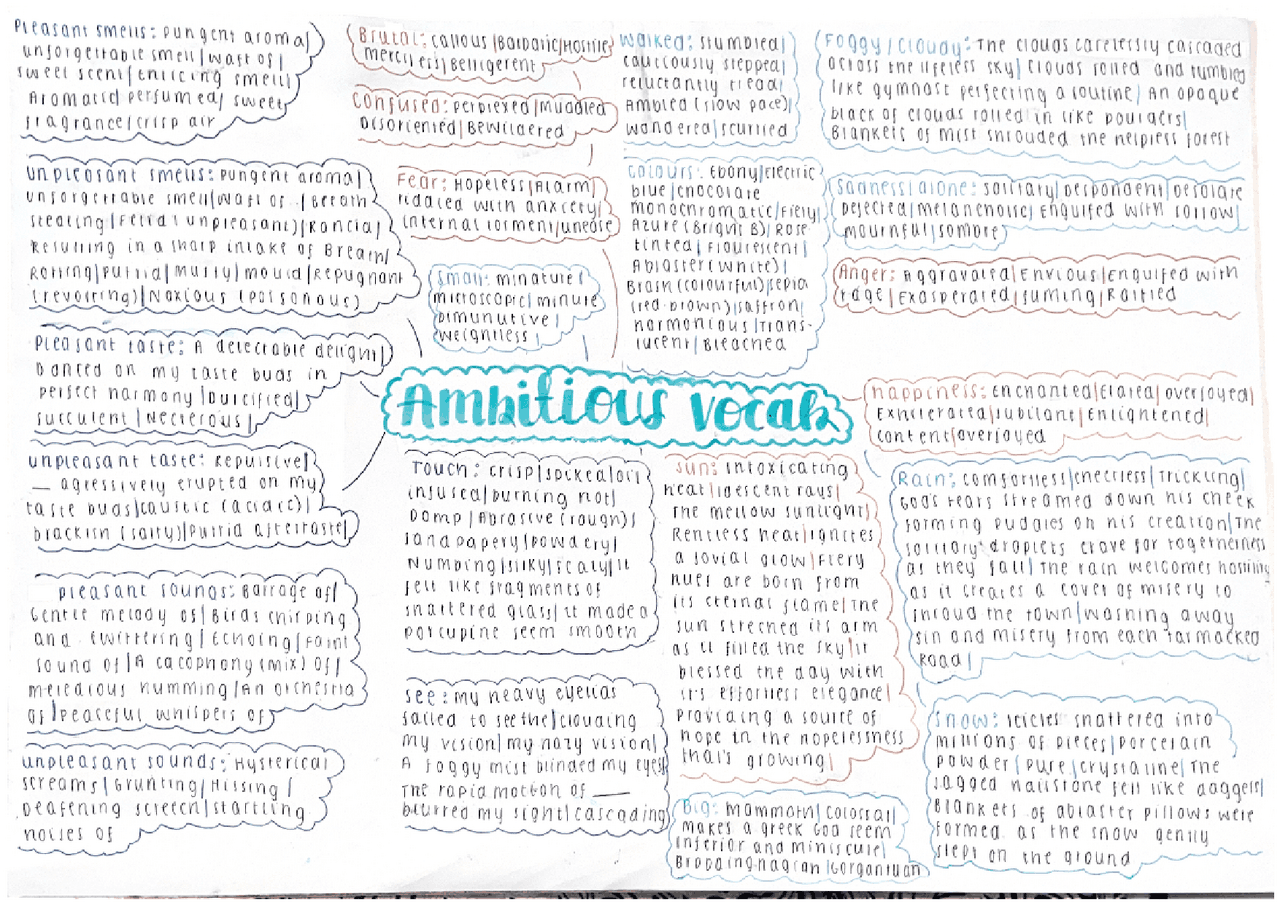 Pleasant smells: Pungent aroma|
unforgettable smell|waft of|
sweet scent|enticing smell|
Aromatic|perfumed|sweet
fragrance|crisp air
unpleasant smells: Pungent aroma|
unforgettable smell|waft of..|Breath
stealing|Fetid(unpleasant)|Rancid|
Resulting in a sharp intake of Breath|
Rotting|Putrid|Musty|mould|Repugnant
(revolting)|Noxious (poisonous)
Pleasant taste: A delectable delight|
Danced on my taste buds in
perfect harmony|Dulcified|
succulent|Necterous|
unpleasant taste: Repulsive|
__ agressively erupted on my
taste buds|caustic (acidic)|
brackish (salty)|Putrid aftertaste|
pleasant sounds: Barrage of|
Gentle melody of|Birds chirping
and twittering|Echoing|Faint
sound of|A cacophony (mix) of|
melodious humming|An orchestra
of|peaceful whispers of
unpleasant sounds: Hysterical
screams|Grunting|Hissing|
Deafening screech|startling
noises of
Brutal: callous|Barbaric|Hostile|
merciless|Belligerent
Confused: perplexed|muddled
Disoriented|Bewildered
Fear: Hopeless|Alarm|
riddled with anxiety|
internal torment|unease
Small: miniature|
microscopic|minute
Diminutive|
weightless|
Walked: stumbled|
cautiously stepped|
reluctantly tread|
Ambled (slow pace)|
wandered|scurried
Colours: Ebony|Electric
blue|chocolate
monochromatic|Fiery|
Azure (Bright B)|Rose
tinted|Flourescent|
Ablaster (white)|
(colourful)|sepia
(red-brown)|saffron|
harmonious|Trans-
lucent|Bleached
Foggy/Cloudy: The clouds carelessly cascaded
across the lifeless sky|clouds rolled and tumbled
like gymnast perfecting a routine|An opaque
black of clouds rolled in like boulders|
Blankets of mist shrouded the helpless forest
Sadness/alone: solitary|Despondent|desolate
Dejected|melancholic|Engulfed with sorrow|
mournful|sombre
Anger: Aggravated|Envious|Engulfed with
rage|Exasperated|fuming|Rattled
Ambitious vocab
happiness: enchanted|Elated|overjoyed|
Exhilerated|jubilant|Enlightened|
content|overjoyed
Touch: crisp|spiked|oil
infused|burning hot|
Damp|Abrasive (rough)|
sandpapery|powdery|
Numbing|silky|scaly|it
felt like fragments of
shattered glass|it made a
porcupine seem smooth
See: my heavy eyelids
failed to see the|clouding
my vision|my hazy vision|
A foggy mist blinded my eyes|
The rapid motion of ___
blurred my sight|cascading
sun: intoxicating
heat|idescent rays|
The mellow sunlight|
Rentless heat|ignites
a jovial glow|Fiery
hues are born from
its eternal flame|the
sun streched its arm
as it filled the sky|it
blessed the day with
it's effortless elegance|
Providing a source of
hope in the hopelessness
that's growing|
Big: mammoth|Colossal|
makes a greek God seem
inferior and miniscule|
Brobdingnagian|Gorgantuan
Rain: comfortless|cheerless|Trickling|
God's tears streamed down his cheek
forming pudgles on his creation|The
solitary droplets crave for togetherness
as they fall|The rain welcomes hostility
as it creates a cover of misery to
shroud the town|washing away
sin and misery from each tarmacked
Road|
Snow: icicles shattered into
millions of pieces|Porcelain
powder|Pure|crystaline|The
jagged hailstone fell like daggers|
Blankets of ablaster pillows were
formed as the snow gently
slept on the ground